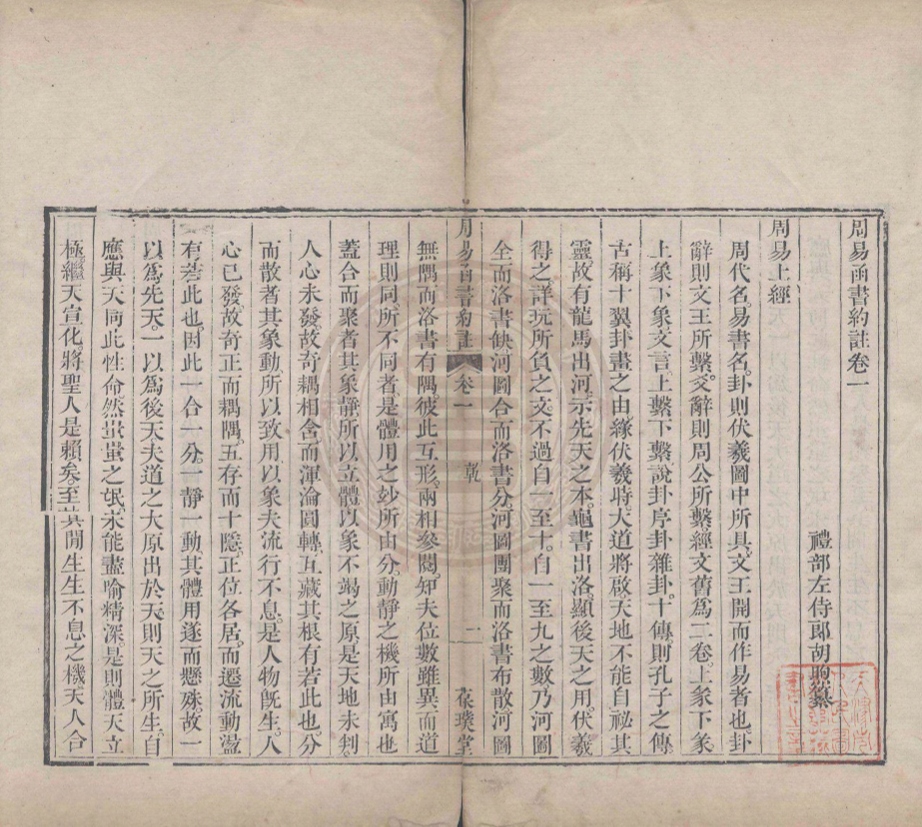 周易函書約註卷一
禮部左侍郎胡煦纂
周易上經
周代名。易書名。卦則伏羲圖中所具。文王開而作易者也。卦
辭則文王所繫。爻辭則周公所繫。經文舊爲二卷。上彖下彖
上象下象文言。上繫下繫說卦序卦雜卦。十傳則孔子之傳
古稱十翼。卦畫之由。緣伏羲時。大道將啟。天地不能自祕其
靈。故有龍馬出河。示先天之本。龜書出洛。顯後天之用。伏羲
得之。詳玩所負之文。不過自一至十。自一至九之數。乃河圖
全而洛書缺。河圖合而洛書分。河圖團聚而洛書布散。河圖
周易函書約註 卷一 乾 一 葆璞堂
無隅而洛書有隅。彼此互形。兩相參閱。知夫位數雖異。而道
理則同。所不同者。是體用之妙所由分。動靜之機所由寓也
蓋合而聚者。其象靜。所以立體。以象不竭之原。是天地未判
人心未發。故奇耦相含。而渾淪圓轉。互藏其根。有若此也。分
而散者。其象動。所以致用。以象夫流行不息。是人物旣生。人
心已發。故奇正而耦隅。五存而十隱。正位各居。而遷流動盪
有若此也。因此一合一分。一靜一動。其體用遂而懸殊。故一
以爲先天。一以爲後天。夫道之大原出於天。則天之所生。自
應與天同此性命。然蚩蚩之氓。未能盡喻精深。是則體天立
極。繼天宣化。將聖人是賴矣。至其閒生生不息之機。天人合